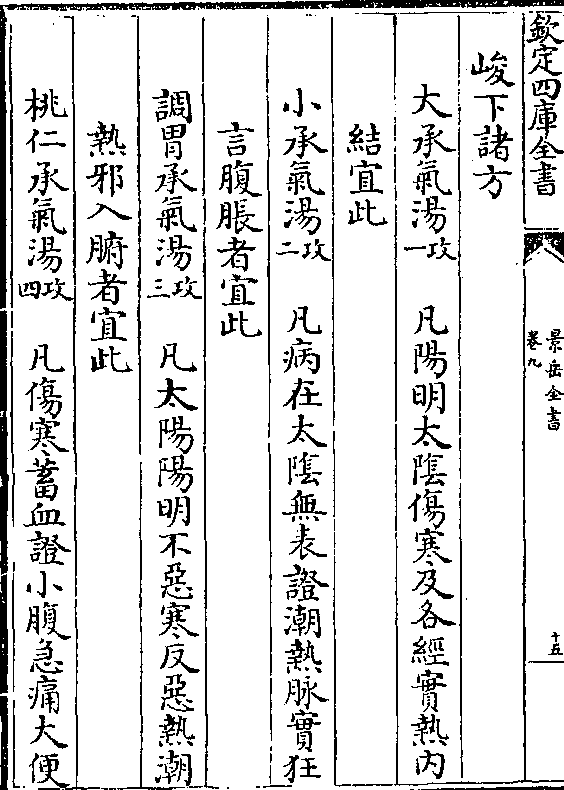 欽定四庫全書
景岳全書
卷九
十五
峻下諸方
大承氣湯攻一 凡陽明太隂傷寒及各經實熱內
結宜此
小承氣湯攻二 凡病在太隂無表證潮熱脉實狂
言腹脹者宜此
調胃承氣湯攻三 凡太陽陽明不惡寒反惡熱潮
熱邪入腑者宜此
桃仁承氣湯攻四 凡傷寒蓄血證小腹急痛大便